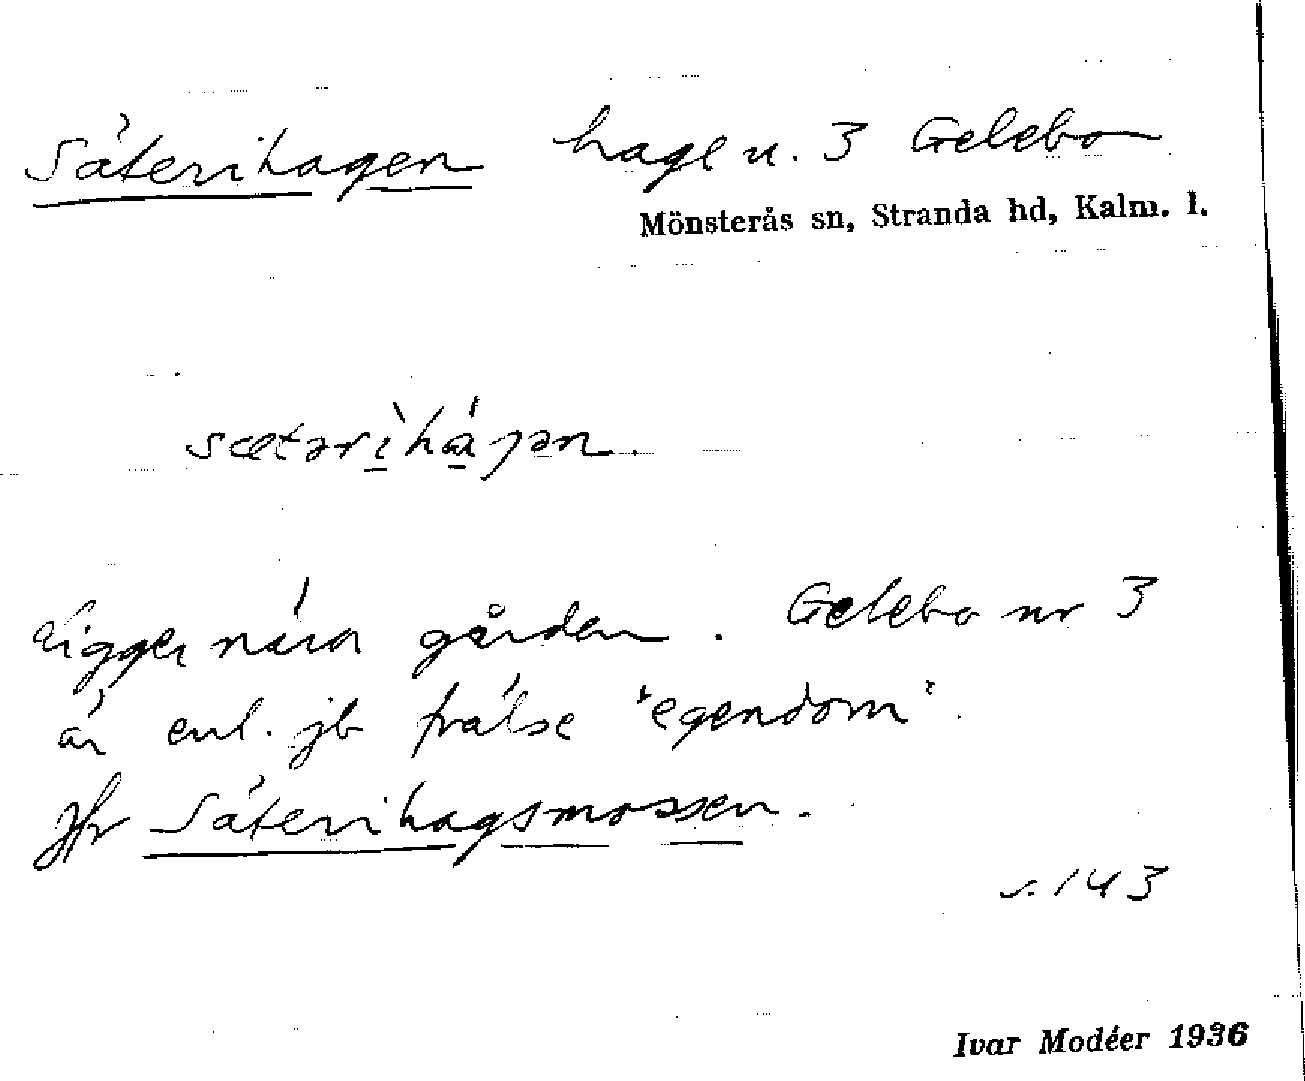 Säterihagen hage u. 3 Gelebo
Mönsterås sn, Stranda hd, Kalm. l.
sætərìhájən.
Ligger nära gården. Gelebo nr 3
är enl. jb frälse "egendom".
Jfr Säterihagsmossen.
s. 143
Ivar Modéer 1936